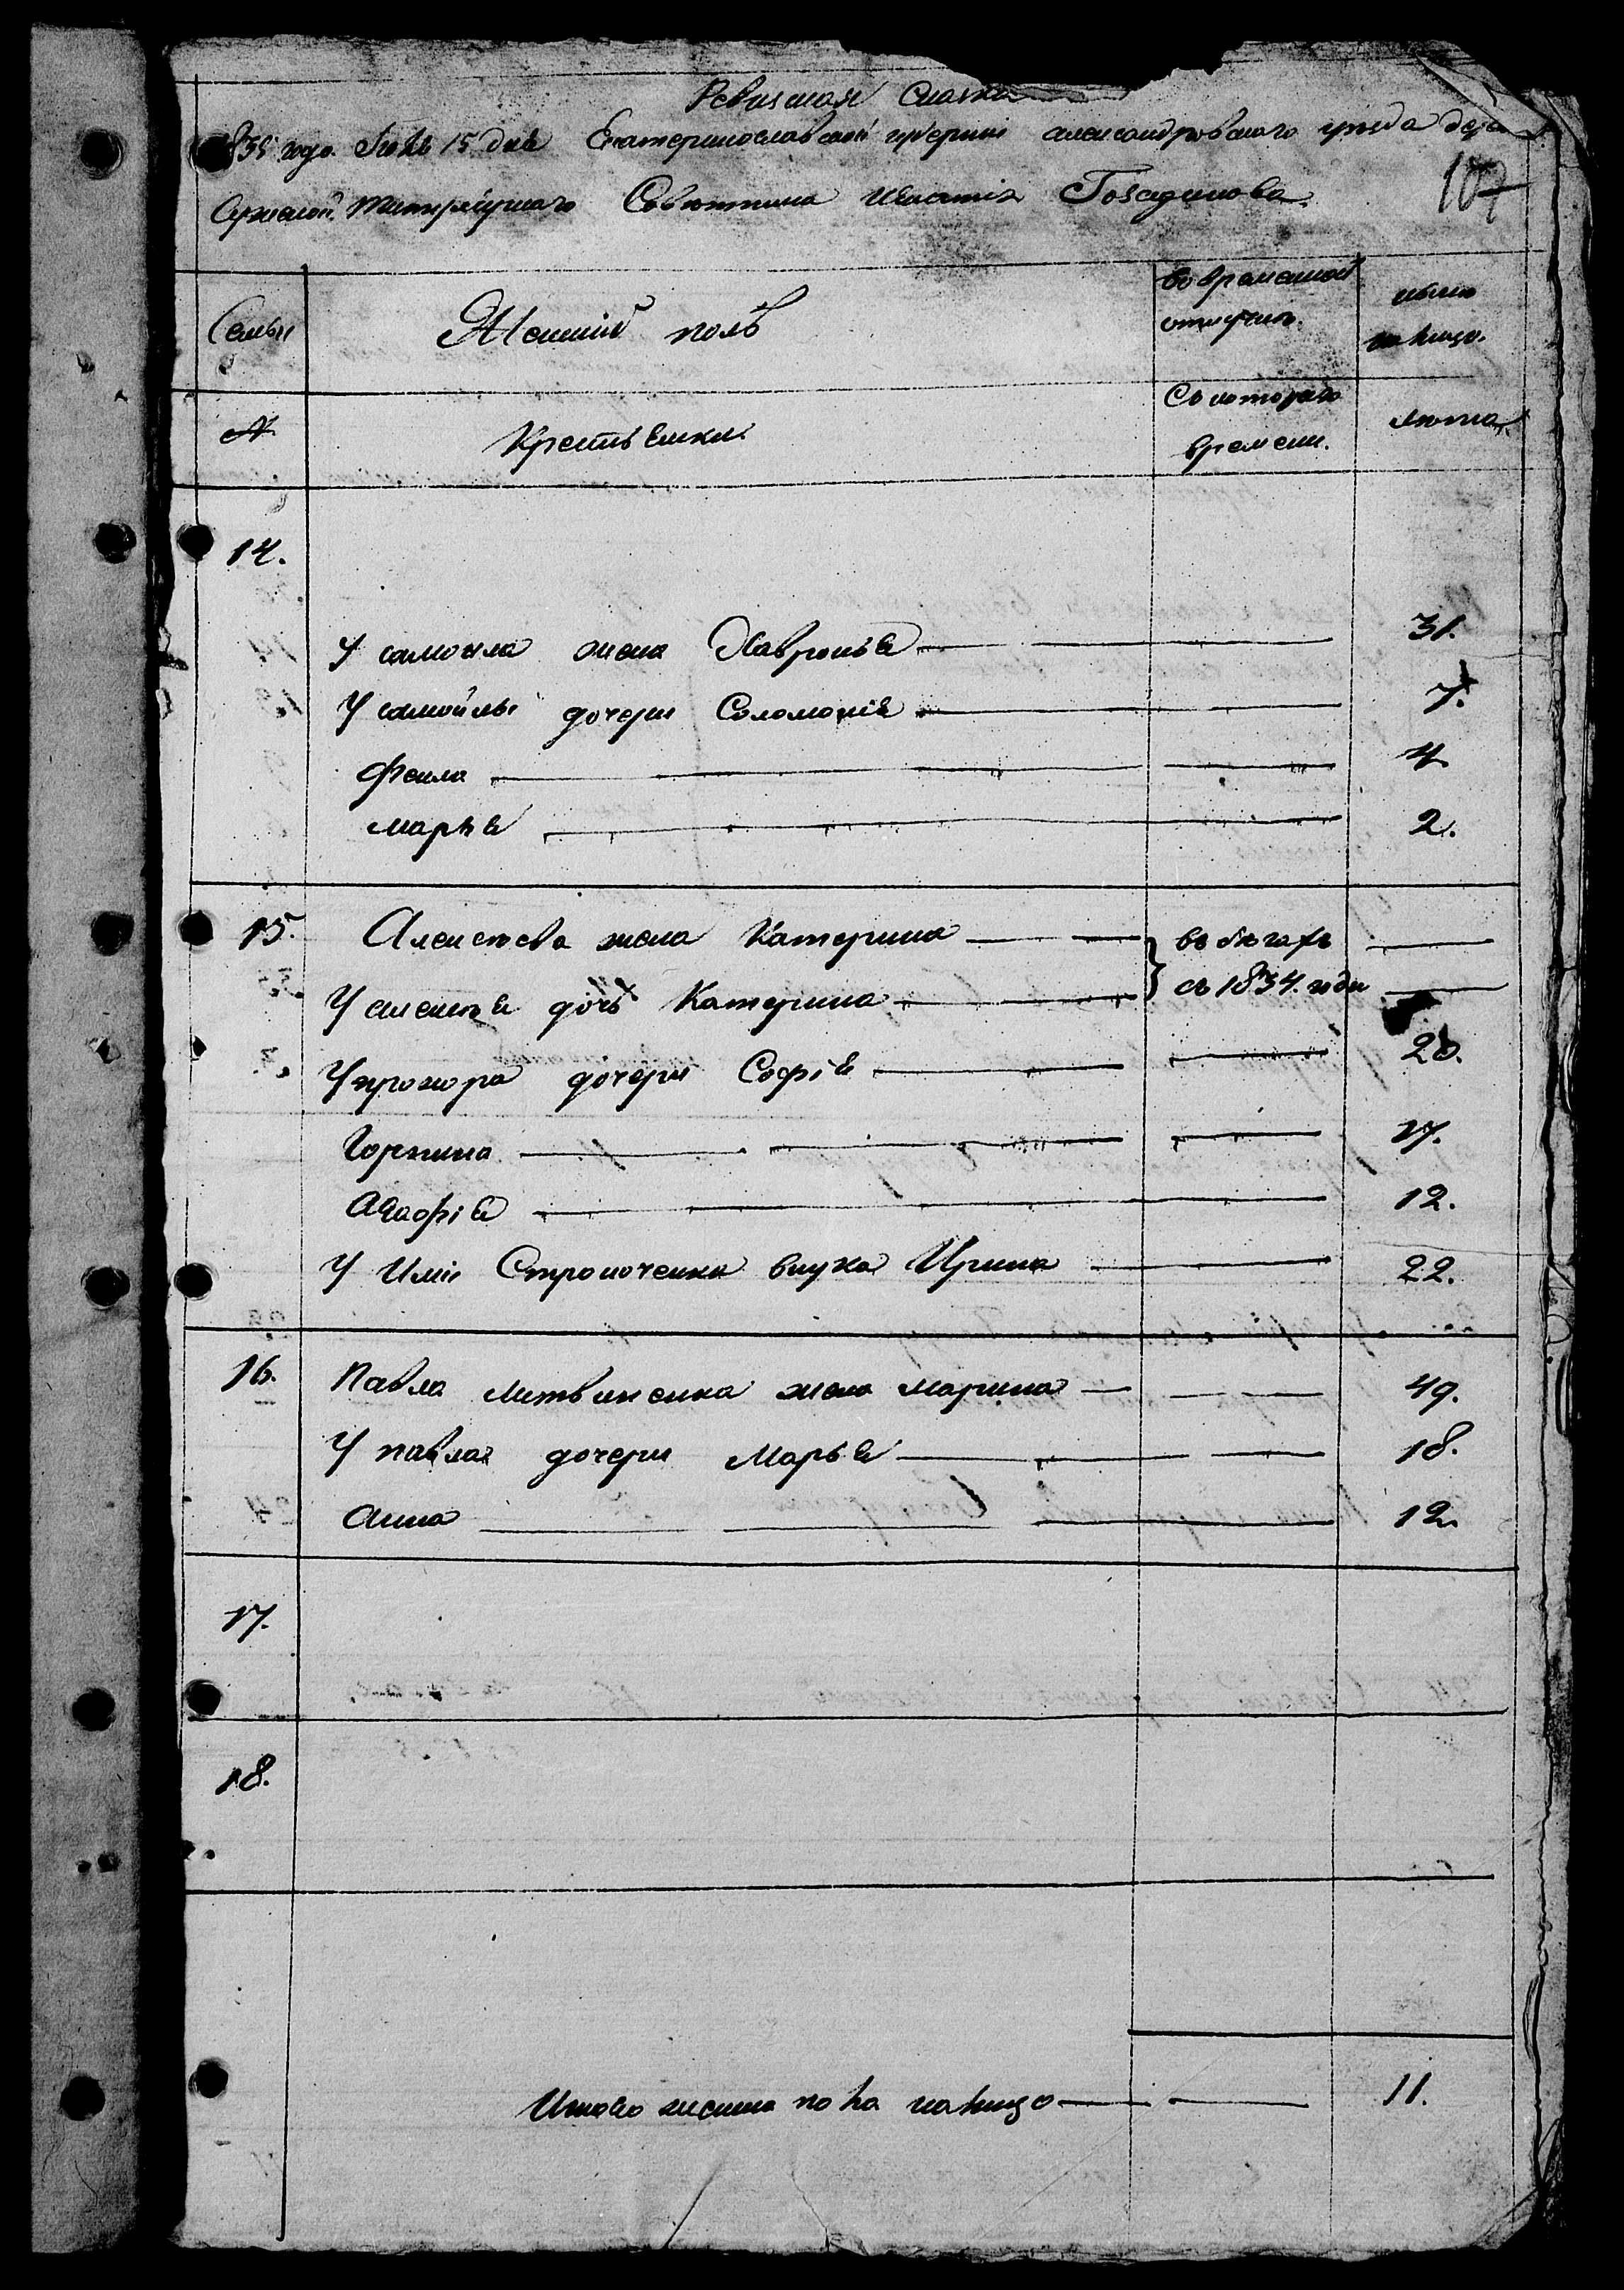 Ревизкая Сказка
1835 года. Июля 15 дня Екатеринославской губернiи александровскаго уезда
Титулярнаго Советника Игнатiя
107
Семьи
Женскiй полъ
Во временной
отлучке.
ныне
на лицо.
№
Крестьянки
Съ котораго
времени.
лета
14.
У самоила жена Хавронья 31.
У самойлы дочери Соломонiя 7.
Фекла 4
марья 2.
15. Алексеева жена Катерина въ бегахъ
У алексея дочь Катерина съ 1834. года
У прохора дочери Софiя 20.
Горпина 17.
Агафiя 12.
У Ильи внука Ирина 22.
16. Павла Литвиненка жена марина 49.
У павла дочери Марья 18.
Анна 12.
17.
18.
Итого женска пола налицо 11.